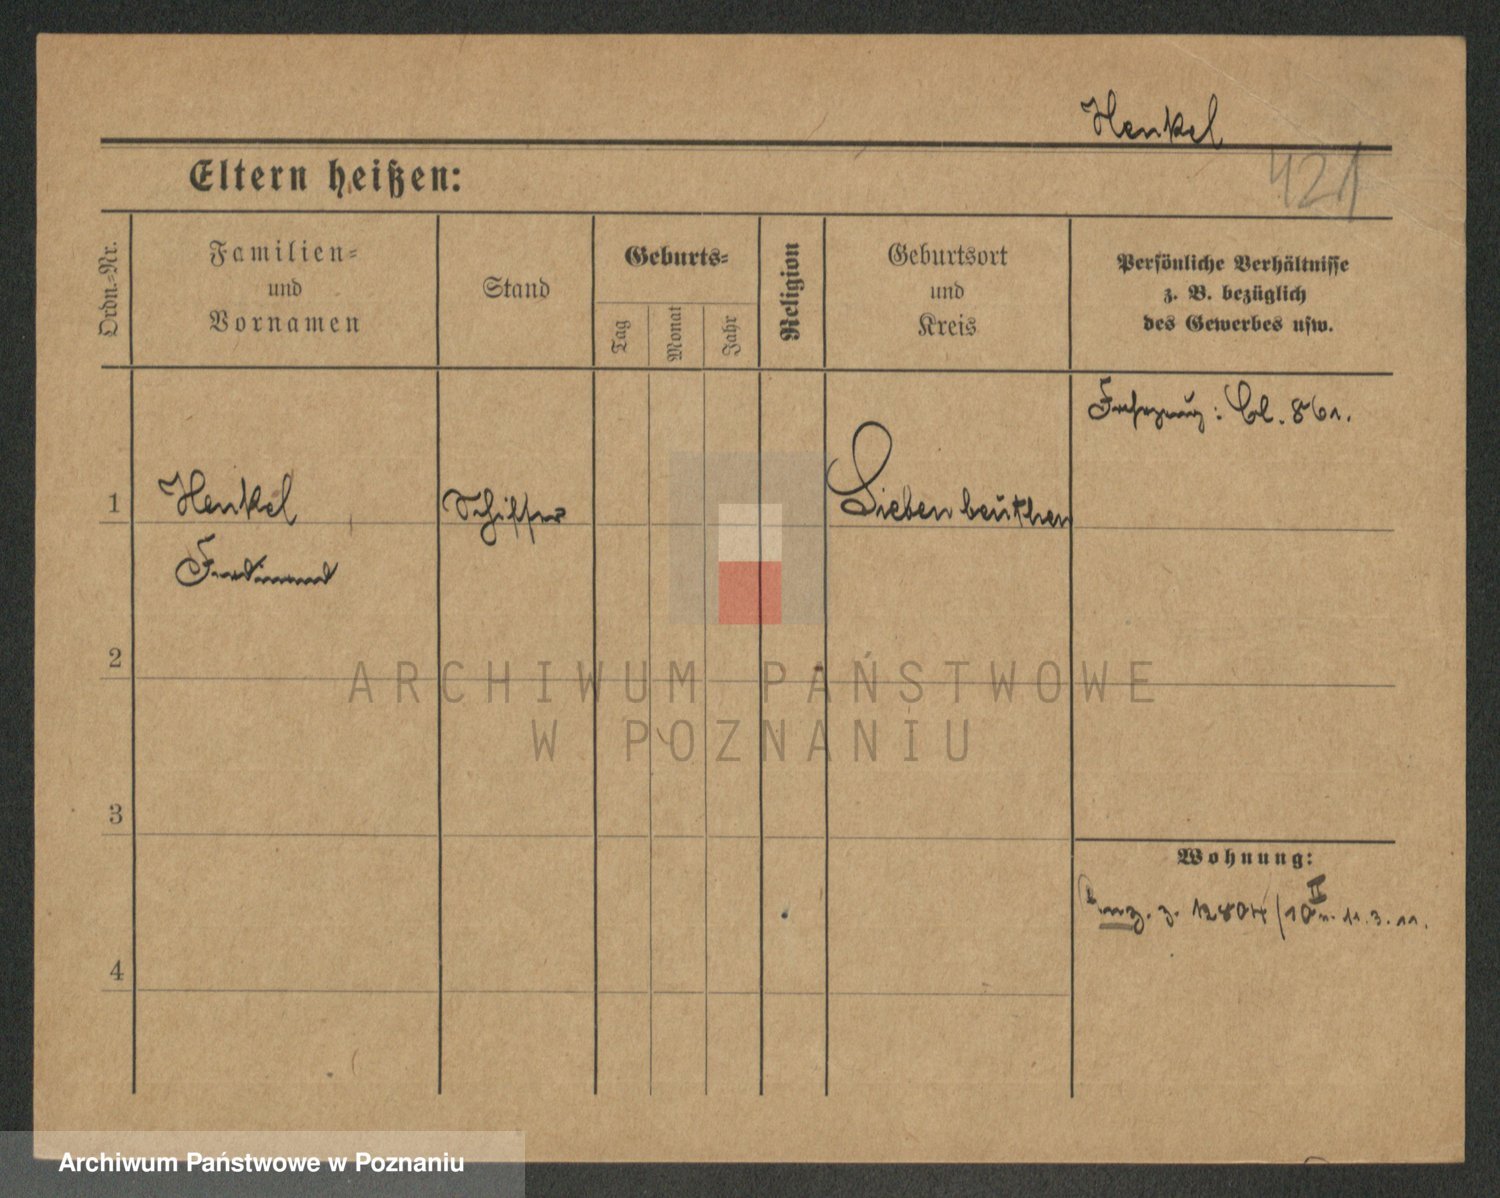 Henkel
421
Eltern heißen:
Ordn.-Nr.
Familien-
und
Vornamen
Stand
Geburts-
Tag
Monat
Jahr
Religion
Geburtsort
und
Kreis
Persönliche Verhältnisse
z. B. bezüglich
des Gewerbes usw.
Fahrzeug: Cbl. 861.
1
Henkel
Schiffer
Liebenbeuthen
Ferdinand
2
ARCHIWUM PAŃSTWOWE
W POZNANIU
3
Wohnung:
Anz. z. 12804/10 II v. 11.3.11.
4
Archiwum Państwowe w Poznaniu